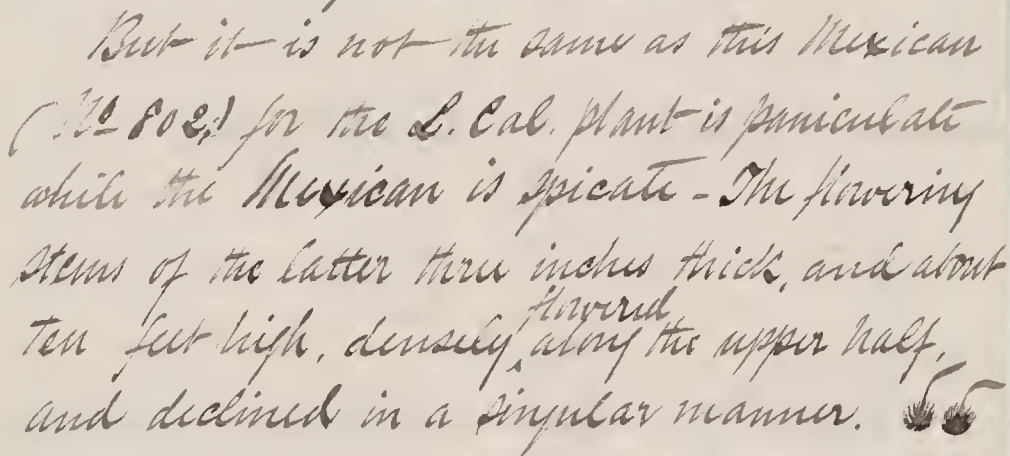 But it is not the same as this Mexican
(No 802,) for the L. Cal. plant is paniculate
while the Mexican is spicate - The flowering
stems of the latter three inches thick, and about
flowered
ten feet high, densely ‸ along the upper half,
and declined in a singular manner.